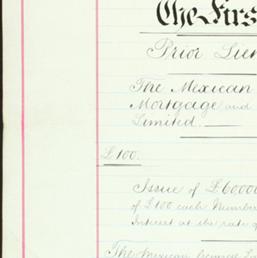 The Firs
Prior Lien
The Mexican
Mortgage and
Limited.
£100.
Issue of £60000
of £100 each Number
Interest at the rate of
The Mexican General L